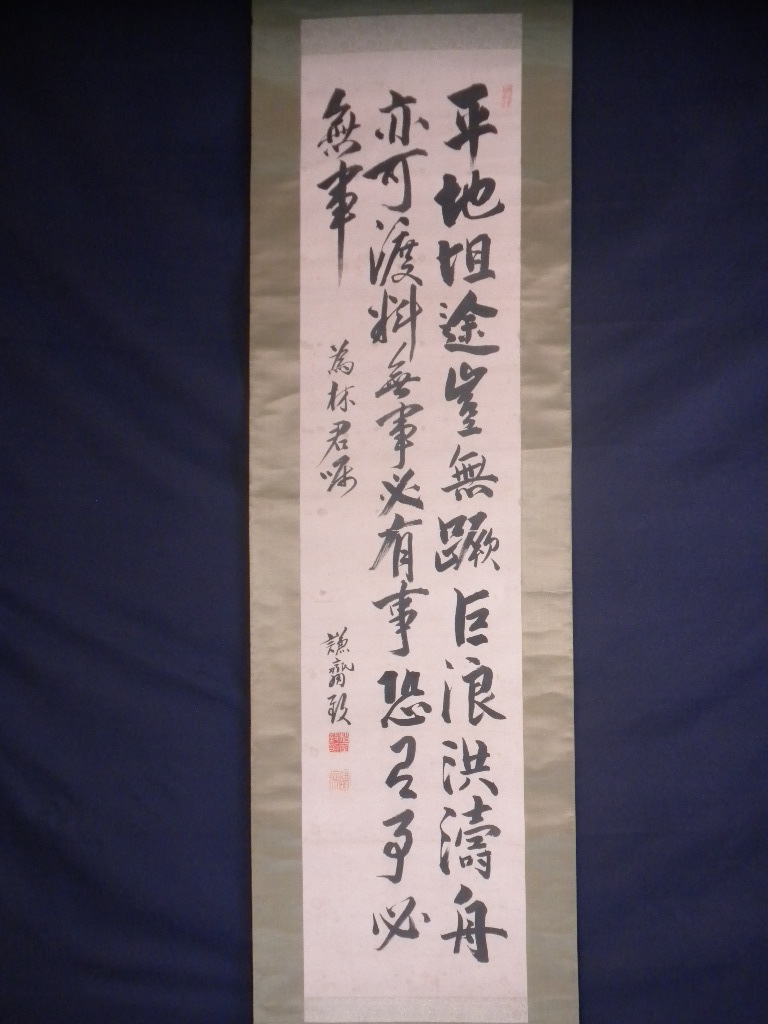 平地坦途豈無蹶巨浪洪濤舟
亦可渡料無事必有事恐有事必
無事
為林君嘱
謙齋毅